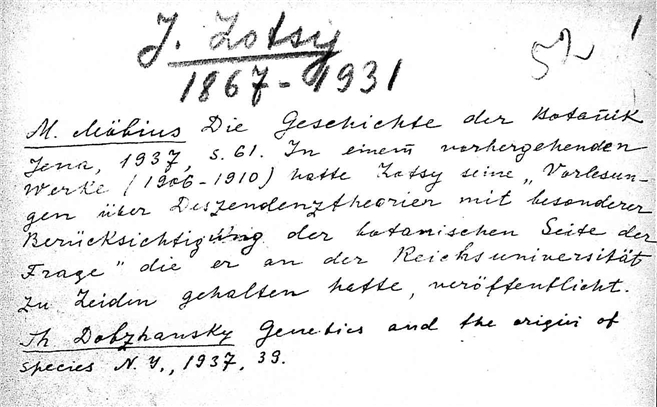 J. Lotsy
1
52
1867-1931
M. Möbius Die Geschichte der Botanik
Jena, 1937, S. 61. In einem vorhergehenden
Werke (1906-1910) hatte Lotsy seine „Vorlesun-
gen über Deszendenztheorien mit besonderer
Berücksichtigung der botanischen Seite der
Frage" die er an der Reichsuniversität
zu Leiden gehalten hatte, veröffentlicht.
Th Dobzhansky Genetics and the origin of
species N. Y., 1937, 39.